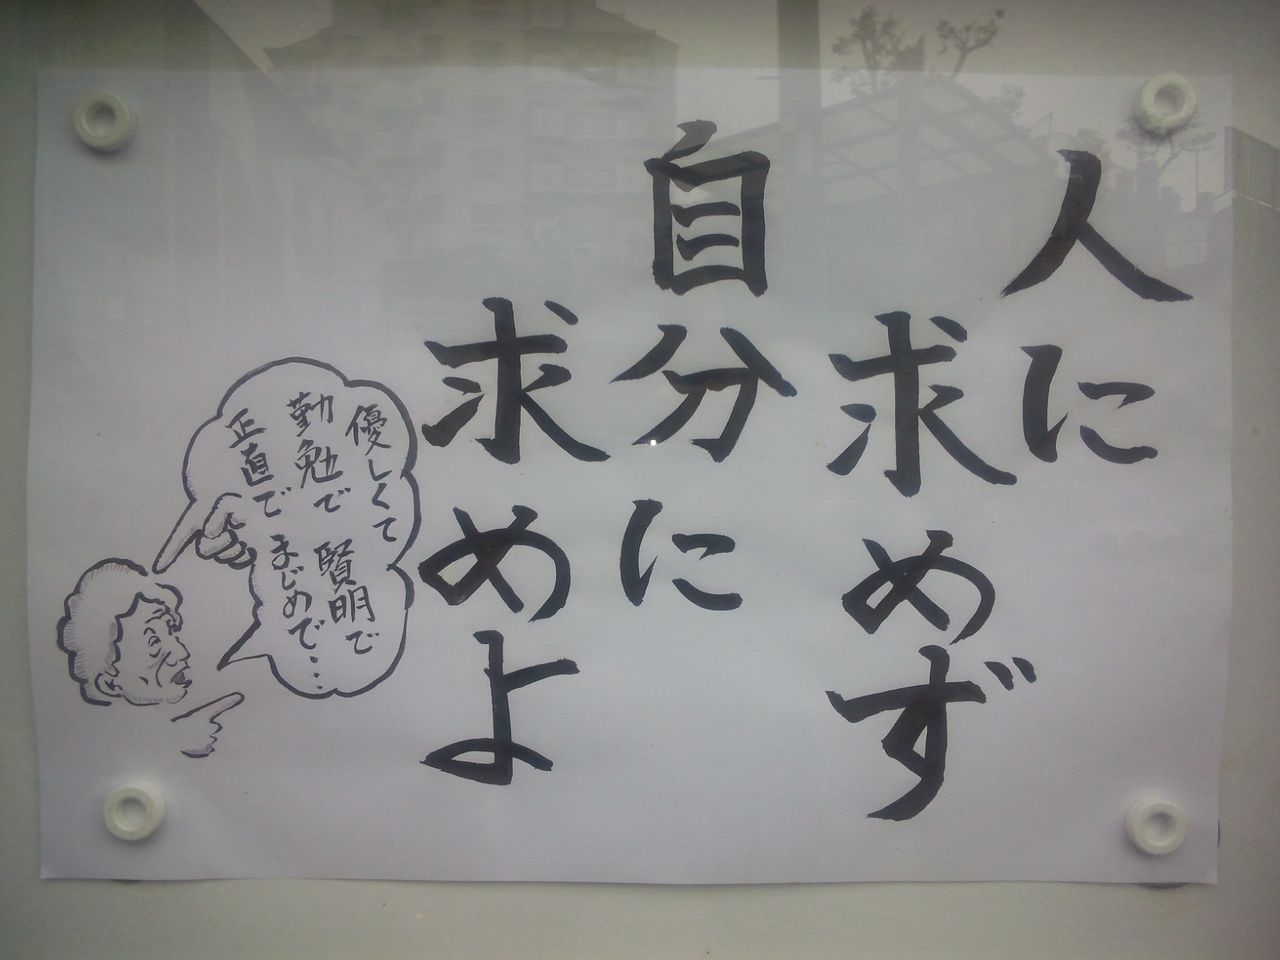 人に
求めず
自分に
求めよ
優しくて
賢明で
勤勉で
まじめで・・・
正直で